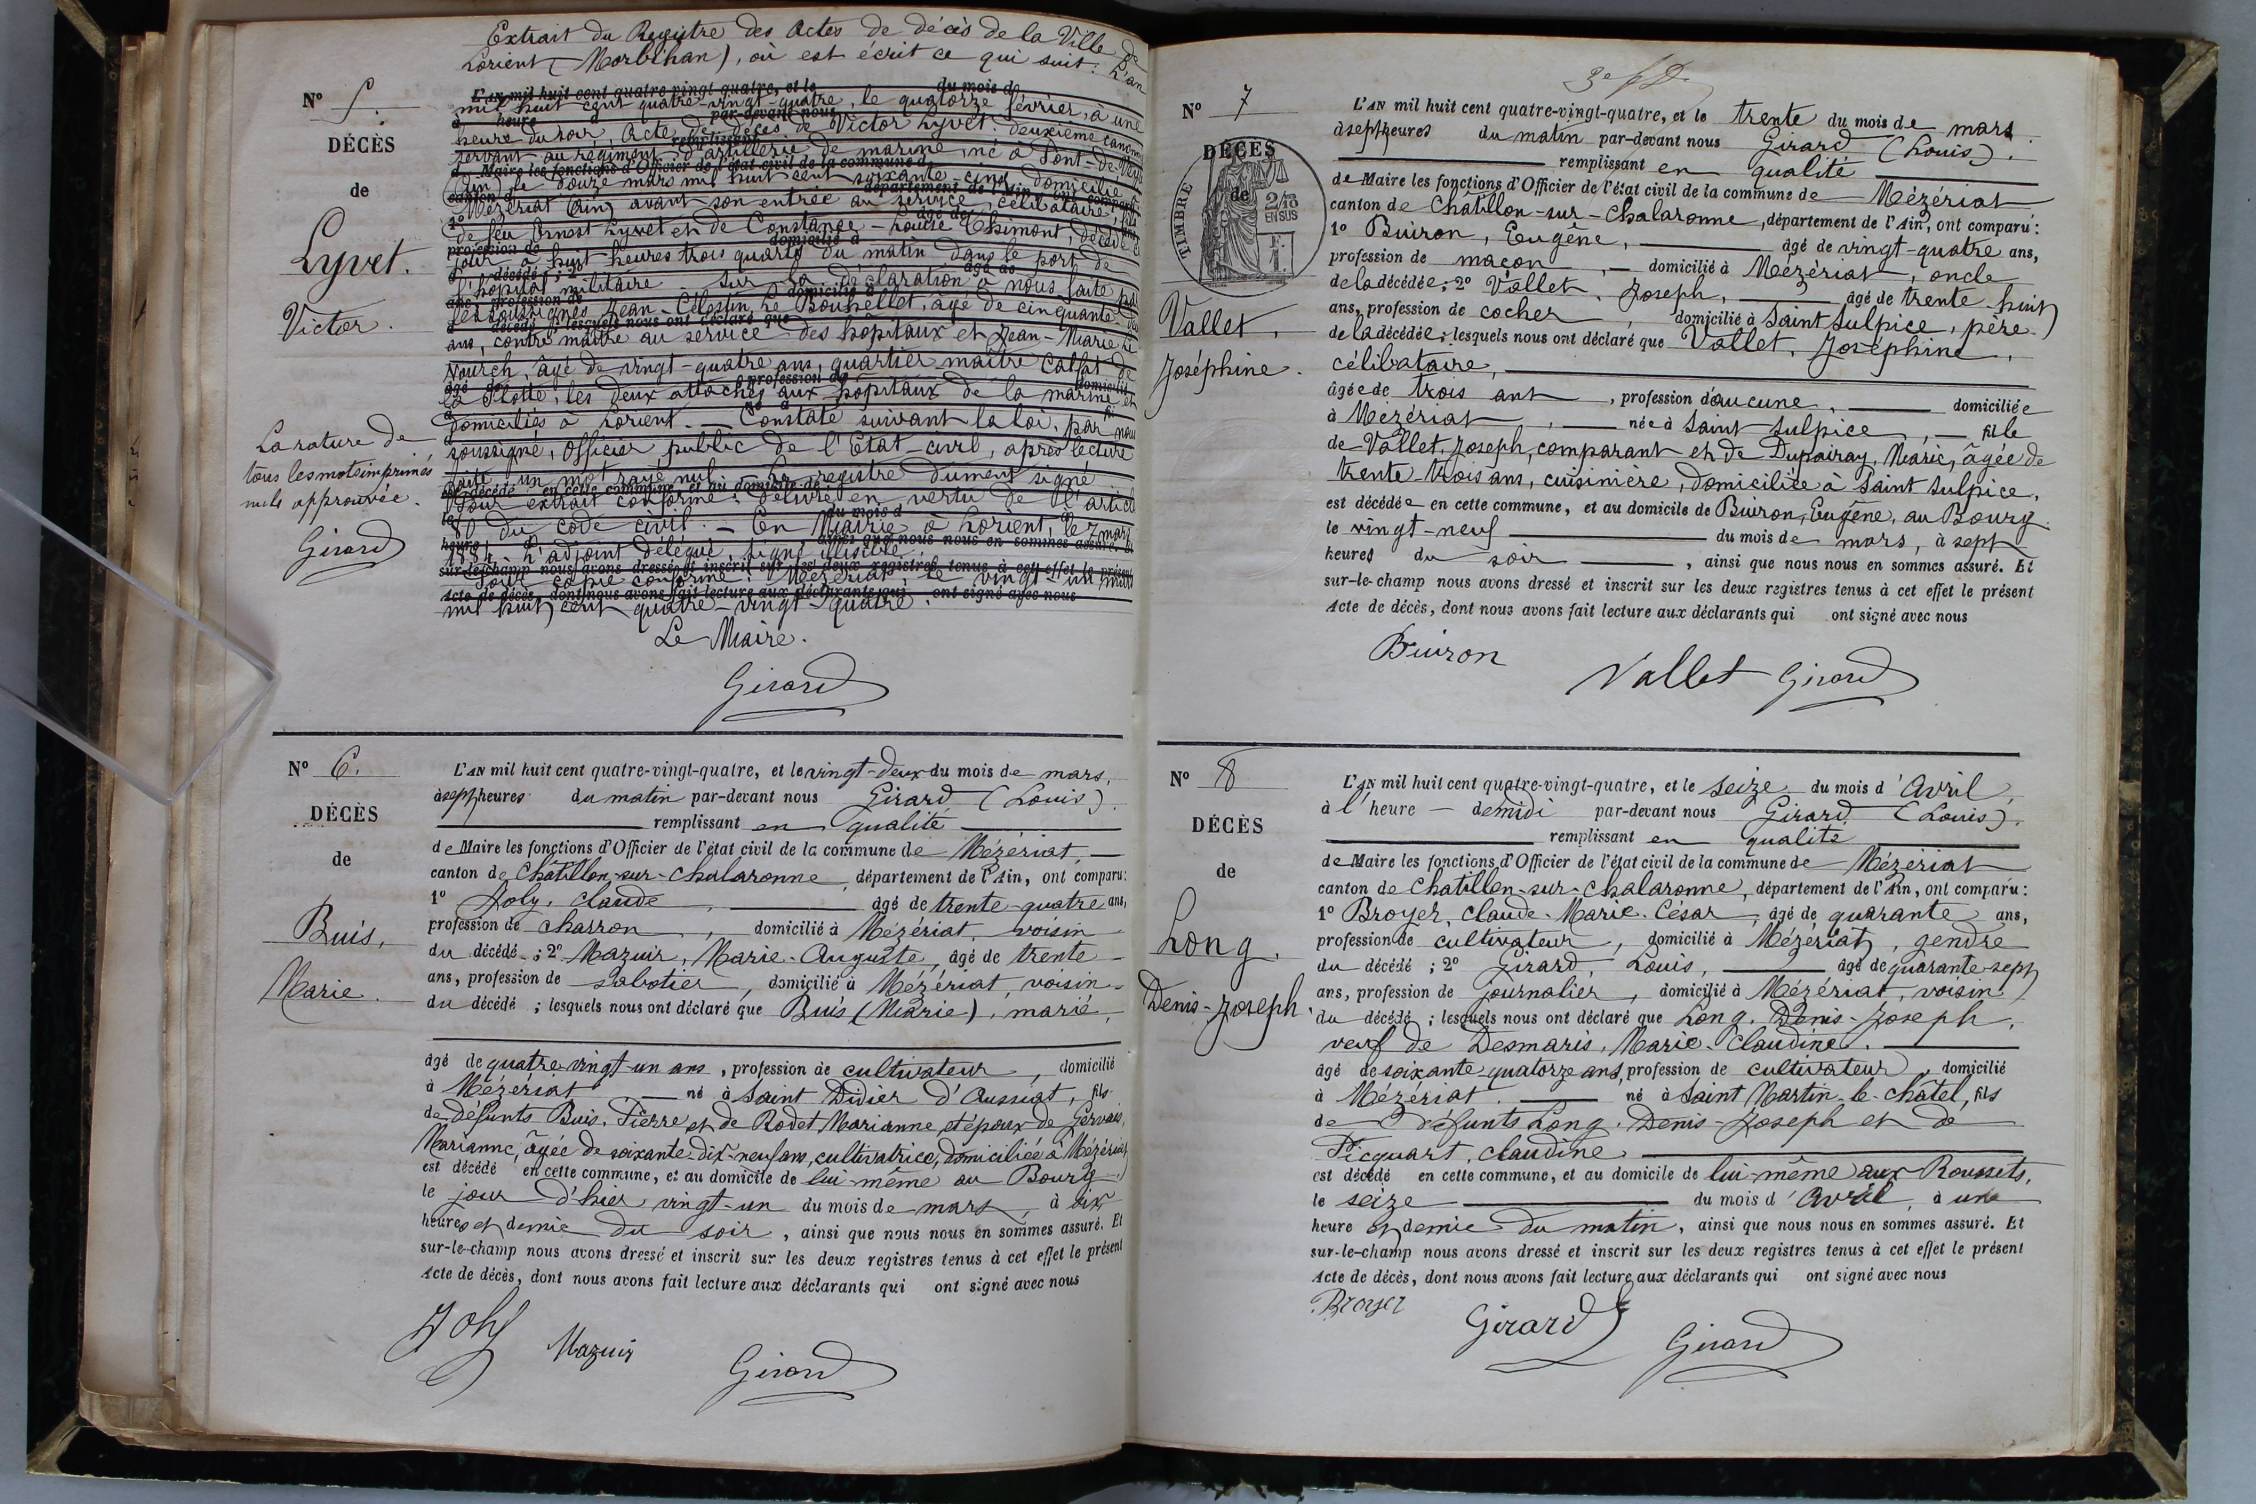 Extrait du Registre des Actes de décès de la Ville de
Lorient (Morbihan), où est écrit ce qui suit : L'an
mil huit cent quatre-vingt-quatre, le quatorze février, à une
heure du soir, Acte de décès de Victor Lyvet, deuxième canonnier
servant au régiment d'artillerie de marine, né à Pont-de-Veyle
(Ain) le douze mars mil huit cent soixante-cinq, domicilié
à Mézériat Ain, avant son entrée au service, célibataire, fils
de feu Ernest Lyvet et de Constance-Louise Thimont, décédé ce
jour à huit heures trois quarts du matin dans le port de
l'hôpital militaire sur la déclaration à nous faite par
les soussignés Jean-Célestin Le Bouhellec, âgé de cinquante
ans, contre maître au service des hôpitaux et Jean-Marie Le
Nourch, âgé de vingt-quatre ans, quartier maître Calfat de
la Flotte, les deux attachés aux hôpitaux de la marine et
domiciliés à Lorient. — Constaté suivant la loi, par nous
soussigné, Officier public de l'Etat-civil, après lecture
faite, un mot rayé nul. Le registre dument signé
Pour extrait conforme : Délivré en vertu de l'article
80 du code civil. — En Mairie à Lorient, le 7 mars
1884. L'adjoint délégué, signé illisible.
Pour copie conforme : Mézériat, le vingt-un mars
mil huit cent quatre-vingt-quatre.
Le Maire.
Girard
N° 5.
DÉCÈS
de
Lyvet.
Victor.
La rature de
tous les mots imprimés
nuls approuvée.
Girard
N° 6.
DÉCÈS
de
Buis,
Marie.
L'AN mil huit cent quatre-vingt-quatre, et le vingt-deux du mois de mars,
à sept heures du matin par-devant nous Girard (Louis).
remplissant en qualité
de Maire les fonctions d'Officier de l'état civil de la commune de Mézériat
canton de Châtillon-sur-Chalaronne, département de l'Ain, ont comparu :
1° Joly, Claude, âgé de trente-quatre ans,
profession de charron, domicilié à Mézériat, voisin
du décédé ; 2° Mazuir, Marie-Auguste, âgé de trente
ans, profession de sabotier, domicilié à Mézériat, voisin
du décédé ; lesquels nous ont déclaré que Buis (Marie), marié,
âgé de quatre vingt-un ans, profession de cultivateur, domicilié
à Mézériat né à Saint Didier d'Aussiat, fils
de défunts Buis, Pierre et de Rodet Marianne, et époux de Gervais,
Marianne, âgée de soixante-dix-neuf ans, cultivatrice, domiciliée à Mézériat
est décédé en cette commune, et au domicile de lui-même au Bourg
le jour d'hier vingt-un du mois de mars, à dix
heures et demie du soir, ainsi que nous nous en sommes assuré. Et
sur-le-champ nous avons dressé et inscrit sur les deux registres tenus à cet effet le présent
Acte de décès, dont nous avons fait lecture aux déclarants qui ont signé avec nous
Joly Mazuir Girard
N° 7
DÉCÈS
de
TIMBRE
2/10
EN SUS
Vallet,
Joséphine.
L'AN mil huit cent quatre-vingt-quatre, et le trente du mois de mars
à sept heures du matin par-devant nous Girard (Louis).
remplissant en qualité
de Maire les fonctions d'Officier de l'état civil de la commune de Mézériat
canton de Châtillon-sur-Chalaronne, département de l'Ain, ont comparu :
1° Buiron, Eugène, âgé de vingt-quatre ans,
profession de maçon, domicilié à Mézériat, oncle
de la décédée ; 2° Vallet, Joseph, âgé de trente huit
ans, profession de cocher, domicilié à Saint Sulpice, père
de la décédée ; lesquels nous ont déclaré que Vallet, Joséphine,
célibataire,
âgée de trois ans, profession d'aucune, domiciliée
à Mézériat, née à Saint Sulpice, fille
de Vallet, Joseph, comparant et de Dupairay, Marie, âgée de
trente trois ans, cuisinière, domiciliée à Saint Sulpice,
est décédée en cette commune, et au domicile de Buiron, Eugène, au Bourg
le vingt-neuf du mois de mars, à sept
heures du soir, ainsi que nous nous en sommes assuré. Et
sur-le-champ nous avons dressé et inscrit sur les deux registres tenus à cet effet le présent
Acte de décès, dont nous avons fait lecture aux déclarants qui ont signé avec nous
Buiron Vallet Girard
N° 8
DÉCÈS
de
Long,
Denis-Joseph.
L'AN mil huit cent quatre-vingt-quatre, et le seize du mois d'Avril,
à l'heure de midi par-devant nous Girard (Louis).
remplissant en qualité
de Maire les fonctions d'Officier de l'état civil de la commune de Mézériat
canton de Chatillon-sur-Chalaronne, département de l'Ain, ont comparu :
1° Broyer, Claude-Marie-César, âgé de quarante ans,
profession de cultivateur, domicilié à Mézériat, gendre
du décédé ; 2° Girard, Louis, âgé de quarante-sept
ans, profession de journalier, domicilié à Mézériat, voisin
du décédé ; lesquels nous ont déclaré que Long, Denis-Joseph,
veuf de Desmaris, Marie-Claudine.
âgé de soixante-quatorze ans, profession de cultivateur, domicilié
à Mézériat. né à Saint Martin-le-châtel, fils
de Défunts Long, Denis-Joseph et de
Picquart, Claudine
est décédé en cette commune, et au domicile de lui-même aux Roussets,
le seize du mois d'Avril, à une
heure et demie du matin, ainsi que nous nous en sommes assuré. Et
sur-le-champ nous avons dressé et inscrit sur les deux registres tenus à cet effet le présent
Acte de décès, dont nous avons fait lecture aux déclarants qui ont signé avec nous
Broyer Girard Girard